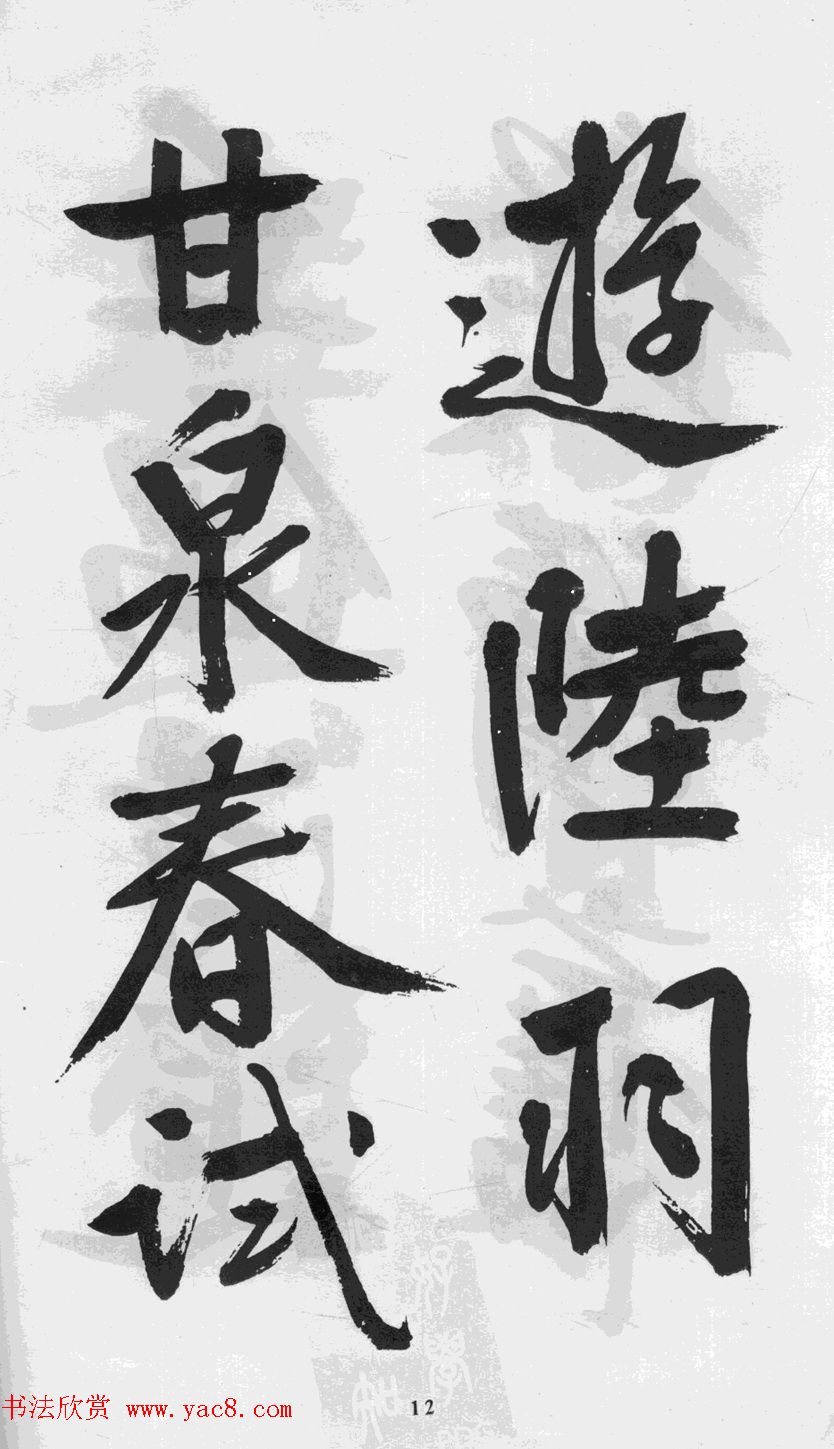 遊陸羽
甘泉春试
12
书法欣赏 www.yac8.com